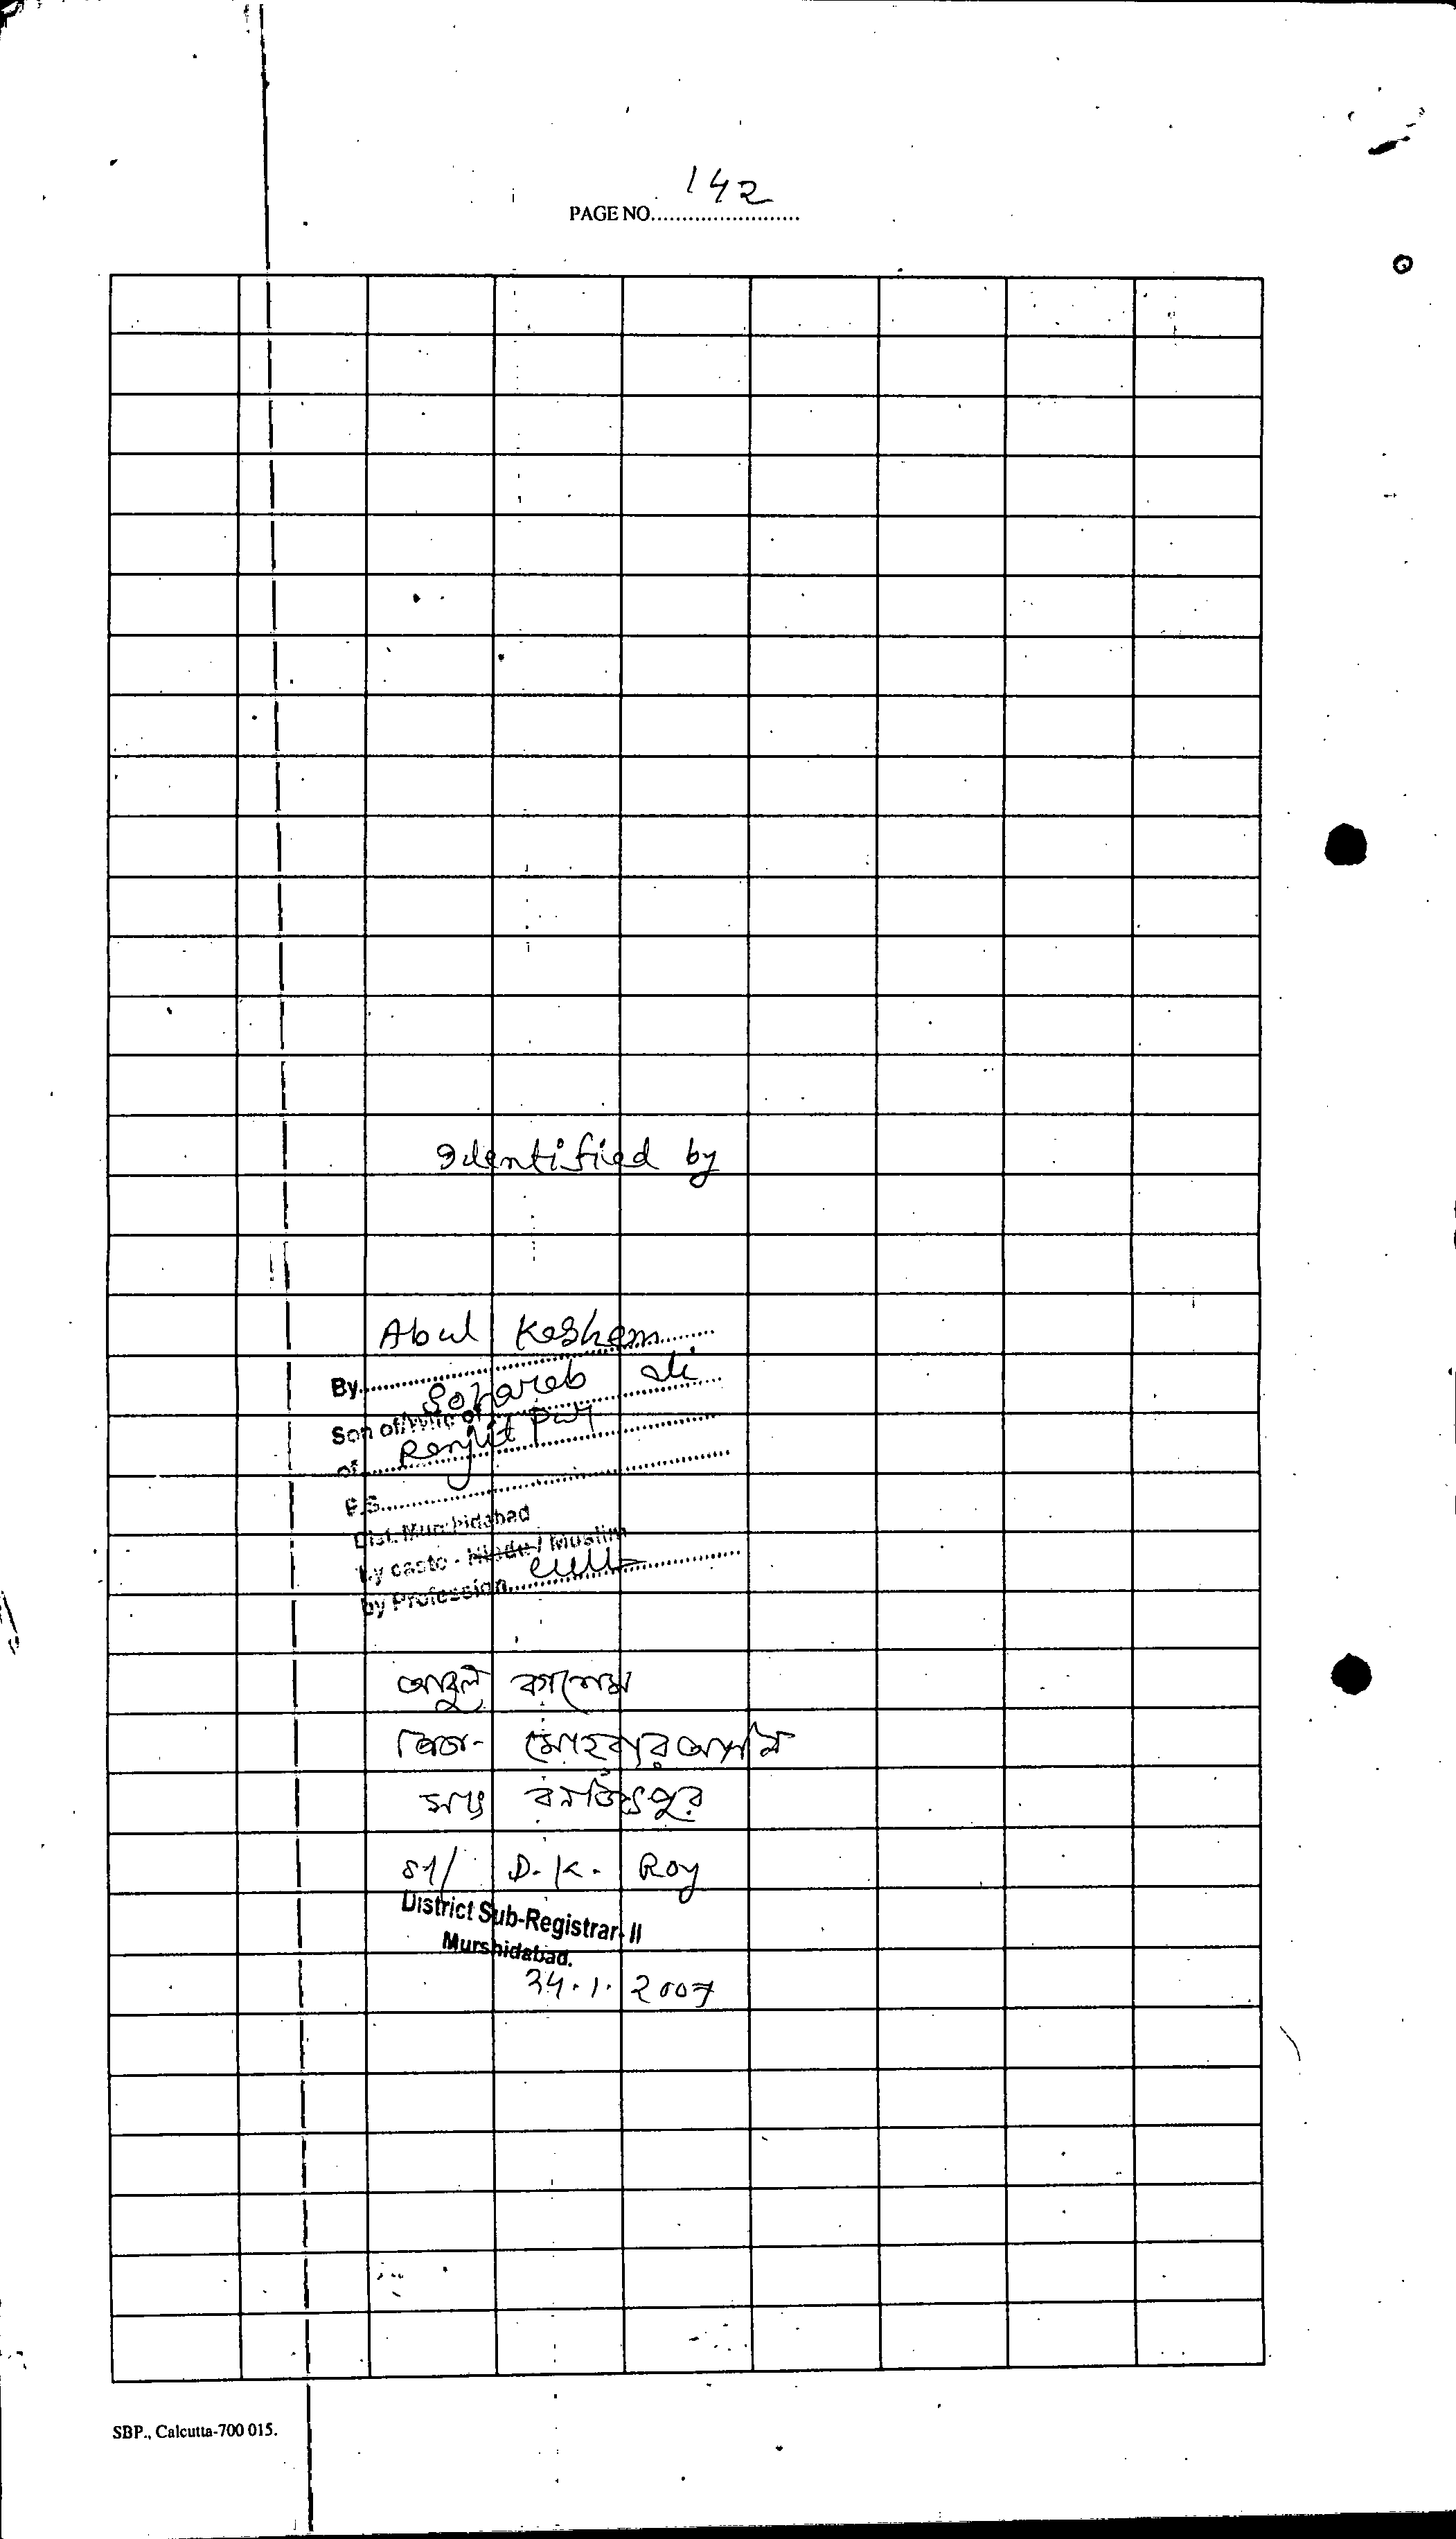 PAGE NO. 142
Identified by
Abul Kashem
By
Sohareb Ali
Son of/Wife of
of Renjitpur
P.S.
Dist. Murshidabad
by caste - Hindu / Muslim
by Profession cult
আবুল কাশেম
পিতা- সোহরাব আলি
সাং রনজিৎপুর
Sd/ D. K. Roy
District Sub-Registrar- II
Murshidabad.
24.1.2007
SBP., Calcutta-700 015.